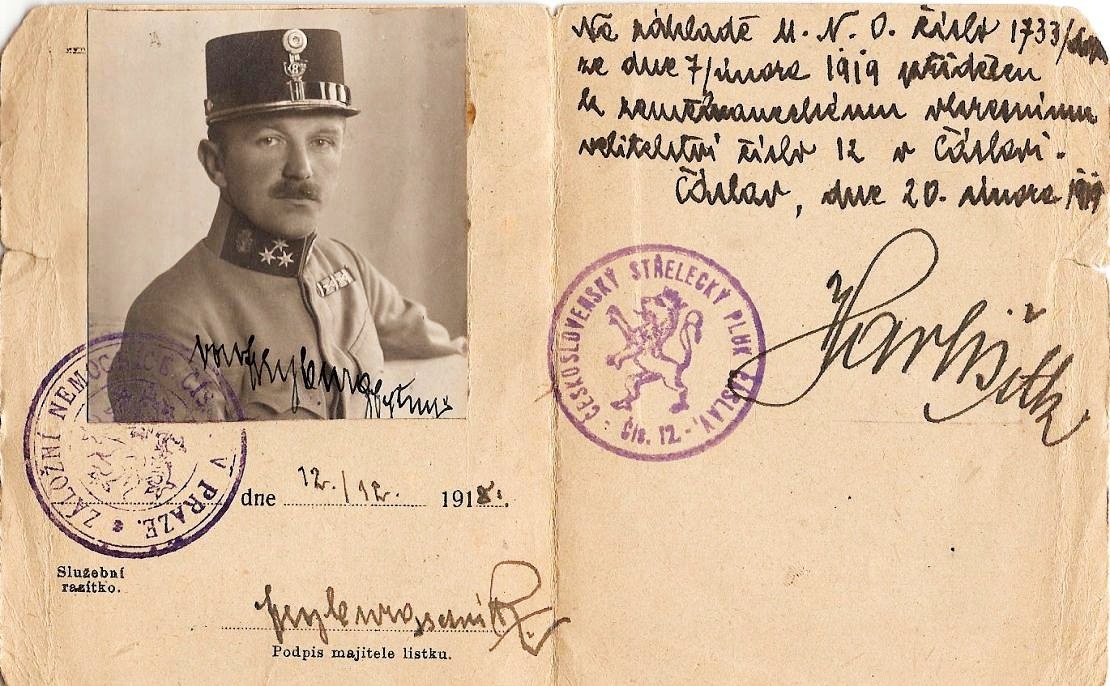 Na základě M. N. O. číslo 1733/
ze dne 7/února 1919 přidělen
k zeměbraneckému okresnímu
velitelství číslo 12 v Čáslavi.
Čáslav, dne 20. února 1919
ČESKOSLOVENSKÝ STŘELECKÝ PLUK ČÁSLAV
ČÍS. 12.
ZÁLOŽNÍ NEMOCNICE V PRAZE.
dne 12./12. 1918.
Služební
razítko.
Podpis majitele lístku.